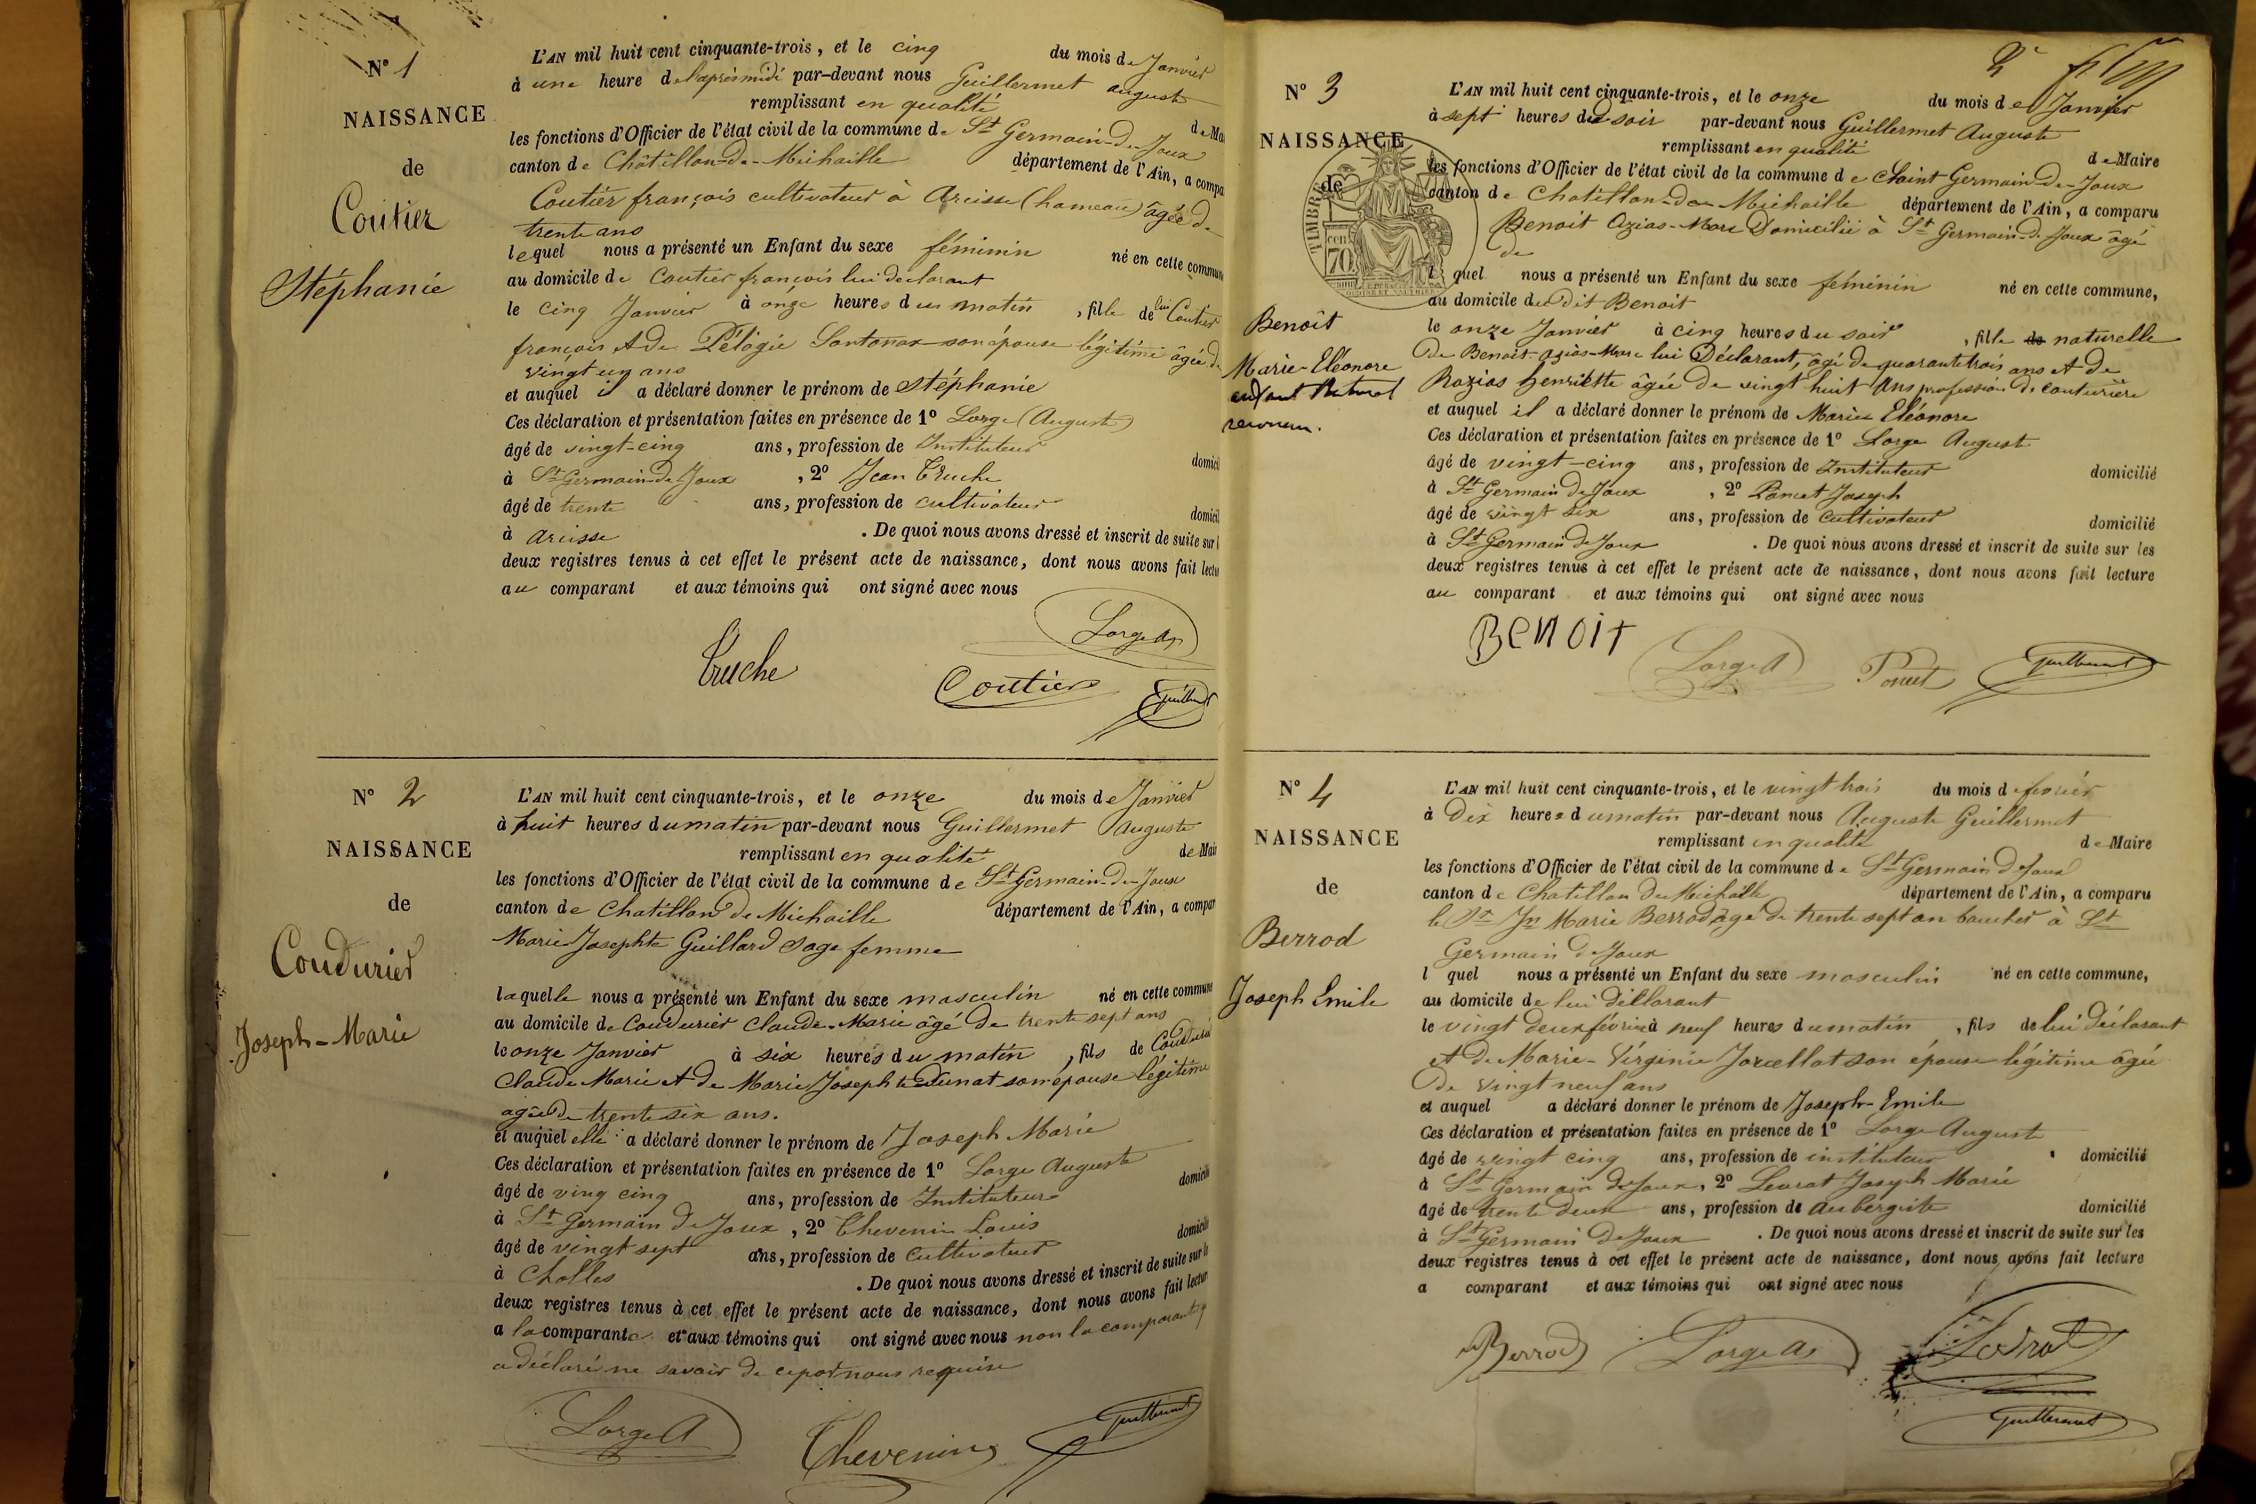 N° 1
NAISSANCE
de
Coutier
Stéphanie
L'AN mil huit cent cinquante-trois, et le cinq du mois de Janvier
à une heure de l'après midi par-devant nous Guillermet auguste
remplissant en qualité de Mai
les fonctions d'Officier de l'état civil de la commune de St Germain-de-Joux
canton de Châtillon-de-Michaille département de l'Ain, a compa
Coutier françois cultivateur à Arcisse (hameau) âgée de
trente ans
lequel nous a présenté un Enfant du sexe féminin né en cette commune
au domicile de Coutier françois lui déclarant
le cinq Janvier à onze heures du matin, fille de lui Coutier
françois et de Pélagie Santonax son épouse légitime âgée de
vingt un ans
et auquel il a déclaré donner le prénom de Stéphanie
Ces déclaration et présentation faites en présence de 1° Lorge (Auguste)
âgé de vingt-cinq ans, profession de Instituteur domicil
à St Germain-de-Joux, 2° Jean Truche
âgé de trente ans, profession de cultivateur domicil
à Arcisse. De quoi nous avons dressé et inscrit de suite sur l
deux registres tenus à cet effet le présent acte de naissance, dont nous avons fait lectu
au comparant et aux témoins qui ont signé avec nous
Lorge A
Truche
Coutier
Guillermet
N° 2
NAISSANCE
de
Coudurier
Joseph-Marie
L'AN mil huit cent cinquante-trois, et le onze du mois de Janvier
à huit heures du matin par-devant nous Guillermet Auguste
remplissant en qualité de Mair
les fonctions d'Officier de l'état civil de la commune de St Germain-de-Joux
canton de Chatillon de Michaille département de l'Ain, a compar
Marie Josephte Guillard Sage femme
laquelle nous a présenté un Enfant du sexe masculin né en cette commune
au domicile de Coudurier Claude-Marie âgé de trente sept ans
le onze Janvier à six heures du matin, fils de Coudurier
Claude Marie et de Marie Josephte Dunat son épouse légitime
agée de trente six ans.
et auquel elle a déclaré donner le prénom de Joseph Marie
Ces déclaration et présentation faites en présence de 1° Lorge Auguste
âgé de ving cinq ans, profession de Instituteur domicilié
à St Germain de Joux, 2° Thevenin Louis
âgé de vingt sept ans, profession de Cultivateur domicilié
à Cholles. De quoi nous avons dressé et inscrit de suite sur le
deux registres tenus à cet effet le présent acte de naissance, dont nous avons fait lectur
a la comparante et aux témoins qui ont signé avec nous non la comparante q
a déclaré ne savoir de ce par nous requise
Lorge A
Thevenin
Guillermet
N° 3
NAISSANCE
de
TIMBRE
cen 70
Benoît
Marie-Eléonore
enfant Naturel
reconnu.
L'AN mil huit cent cinquante-trois, et le onze du mois de Janvier
à sept heures du soir par-devant nous Guillermet Auguste
remplissant en qualité de Maire
les fonctions d'Officier de l'état civil de la commune de Saint Germain-de-Joux
canton de Chatillon-de-Michaille département de l'Ain, a comparu
Benoit Ozias-Marc Domicilié à St Germain-de-Joux âgé
de
l quel nous a présenté un Enfant du sexe féminin né en cette commune,
au domicile du Dit Benoit
le onze Janvier à cinq heures du soir, fille de naturelle
de Benoit Ozias-Marc lui Déclarant, âgé de quarante trois ans et de
Razias henriette âgée de vingt huit Ans profession de couturière
et auquel il a déclaré donner le prénom de Marie Eléonore
Ces déclaration et présentation faites en présence de 1° Lorge August
âgé de vingt-cinq ans, profession de Instituteur domicilié
à St Germain de Joux, 2° Poncet Joseph
âgé de vingt six ans, profession de Cultivateur domicilié
à St Germain de Joux. De quoi nous avons dressé et inscrit de suite sur les
deux registres tenus à cet effet le présent acte de naissance, dont nous avons fait lecture
au comparant et aux témoins qui ont signé avec nous
BENOIT
Lorge A
Poncet
Guillermet
N° 4
NAISSANCE
de
Berrod
Joseph Emile
L'AN mil huit cent cinquante-trois, et le vingt trois du mois de février
à Dix heures du matin par-devant nous Auguste Guillermet
remplissant en qualité de Maire
les fonctions d'Officier de l'état civil de la commune de St Germain de Joux
canton de Chatillon de Michaille département de l'Ain, a comparu
le Sr Jn Marie Berrod âgé de trente sept an boucher à St
Germain de Joux
l quel nous a présenté un Enfant du sexe masculin né en cette commune,
au domicile de lui déclarant
le vingt deux février à neuf heures du matin, fils de lui déclarant
et de Marie-Virginie Jorcellat son épouse légitime âgée
De vingt neuf ans
et auquel a déclaré donner le prénom de Joseph-Emile
Ces déclaration et présentation faites en présence de 1° Lorge Auguste
âgé de vingt cinq ans, profession de instituteur domicilié
à St Germain de Joux, 2° Levrat Joseph Marie
âgé de trente deux ans, profession de aubergiste domicilié
à St Germain de Joux. De quoi nous avons dressé et inscrit de suite sur les
deux registres tenus à cet effet le présent acte de naissance, dont nous avons fait lecture
a comparant et aux témoins qui ont signé avec nous
Berrod
Lorge A
Levrat
Guillermet